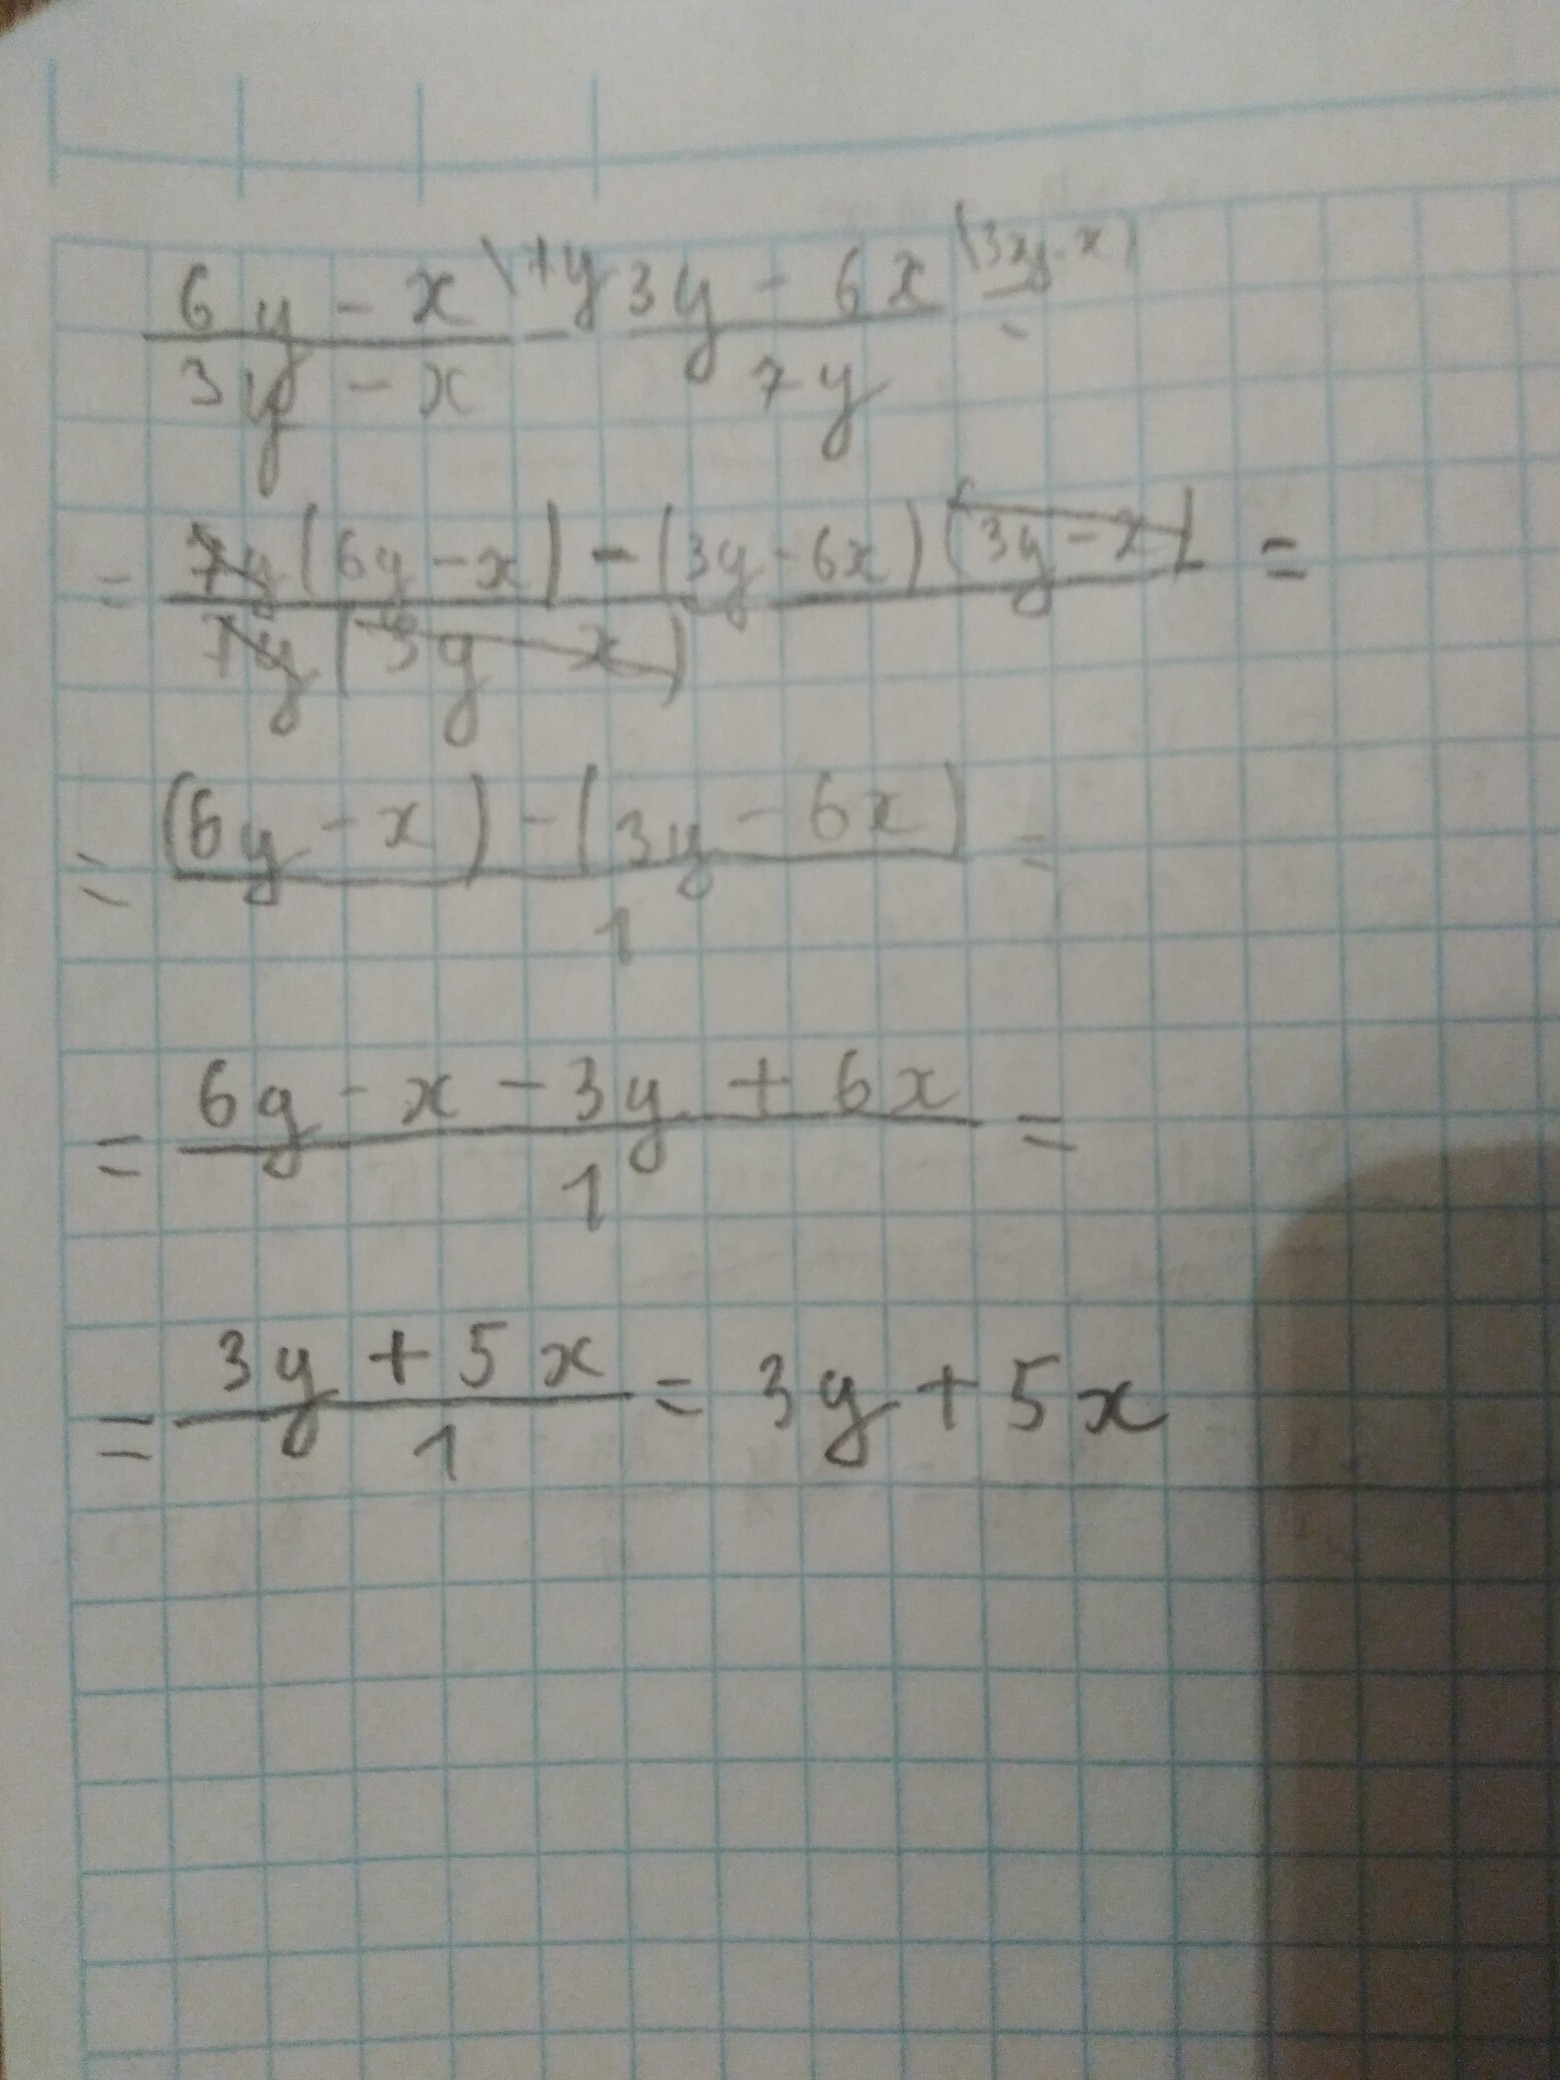 (6y - x)/(3y - x) \7y - (3y - 6x)/(7y) \3y-x) =
= (7y(6y - x) - (3y - 6x)(3y - x))/(7y(3y - x)) =
= ((6y - x) - (3y - 6x))/1 =
= (6y - x - 3y + 6x)/1 =
= (3y + 5x)/1 = 3y + 5x